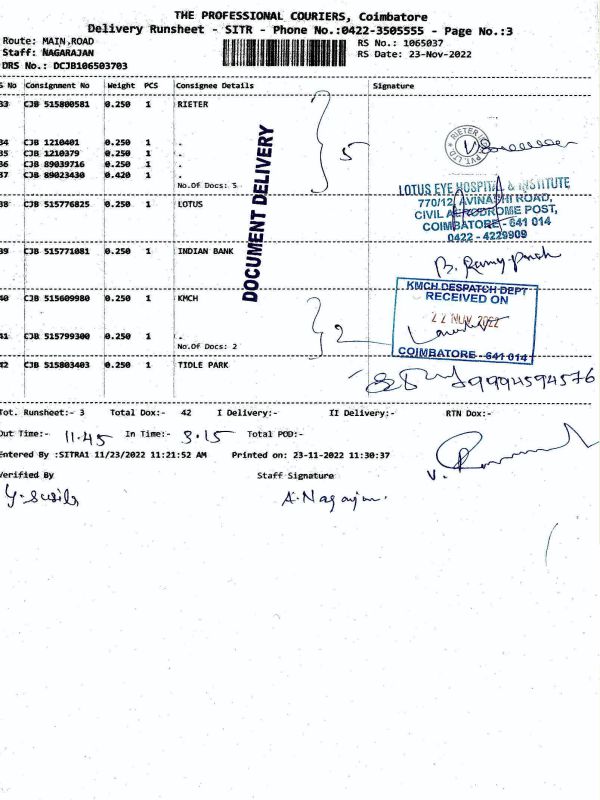 THE PROFESSIONAL COURIERS, Coimbatore
Delivery Runsheet - SITR - Phone No.:0422-3505555 - Page No.:3
Route: MAIN ROAD
RS No.: 1065037
Staff: NAGARAJAN
RS Date: 23-Nov-2022
DRS No.: DCJB106503703
S No Consignment No Weight PCS Consignee Details Signature
33 CJB 515800581 0.250 1 RIETER
34 CJB 1210401 0.250 1 .
35 CJB 1210379 0.250 1 .
36 CJB 89039716 0.250 1 .
37 CJB 89023430 0.420 1 .
No.Of Docs: 5
5
RIETER
PVT. LTD
DOCUMENT DELIVERY
38 CJB 515776825 0.250 1 LOTUS
LOTUS EYE HOSPITAL & INSTITUTE
770/12, AVINASHI ROAD,
CIVIL AERODROME POST,
COIMBATORE - 641 014
0422 - 4229909
39 CJB 515771081 0.250 1 INDIAN BANK
40 CJB 515609980 0.250 1 KMCH
41 CJB 515799300 0.250 1 .
No.Of Docs: 2
2
KMCH DESPATCH DEPT
RECEIVED ON
22 NOV 2022
COIMBATORE - 641 014
42 CJB 515803403 0.250 1 TIDLE PARK
9994594576
Tot. Runsheet:- 3 Total Dox:- 42 I Delivery:- II Delivery:- RTN Dox:-
Out Time:- 11.45 In Time:- 3.15 Total POD:-
Entered By :SITRA1 11/23/2022 11:21:52 AM Printed on: 23-11-2022 11:30:37
Verified By Staff Signature
A. Nagarajan.